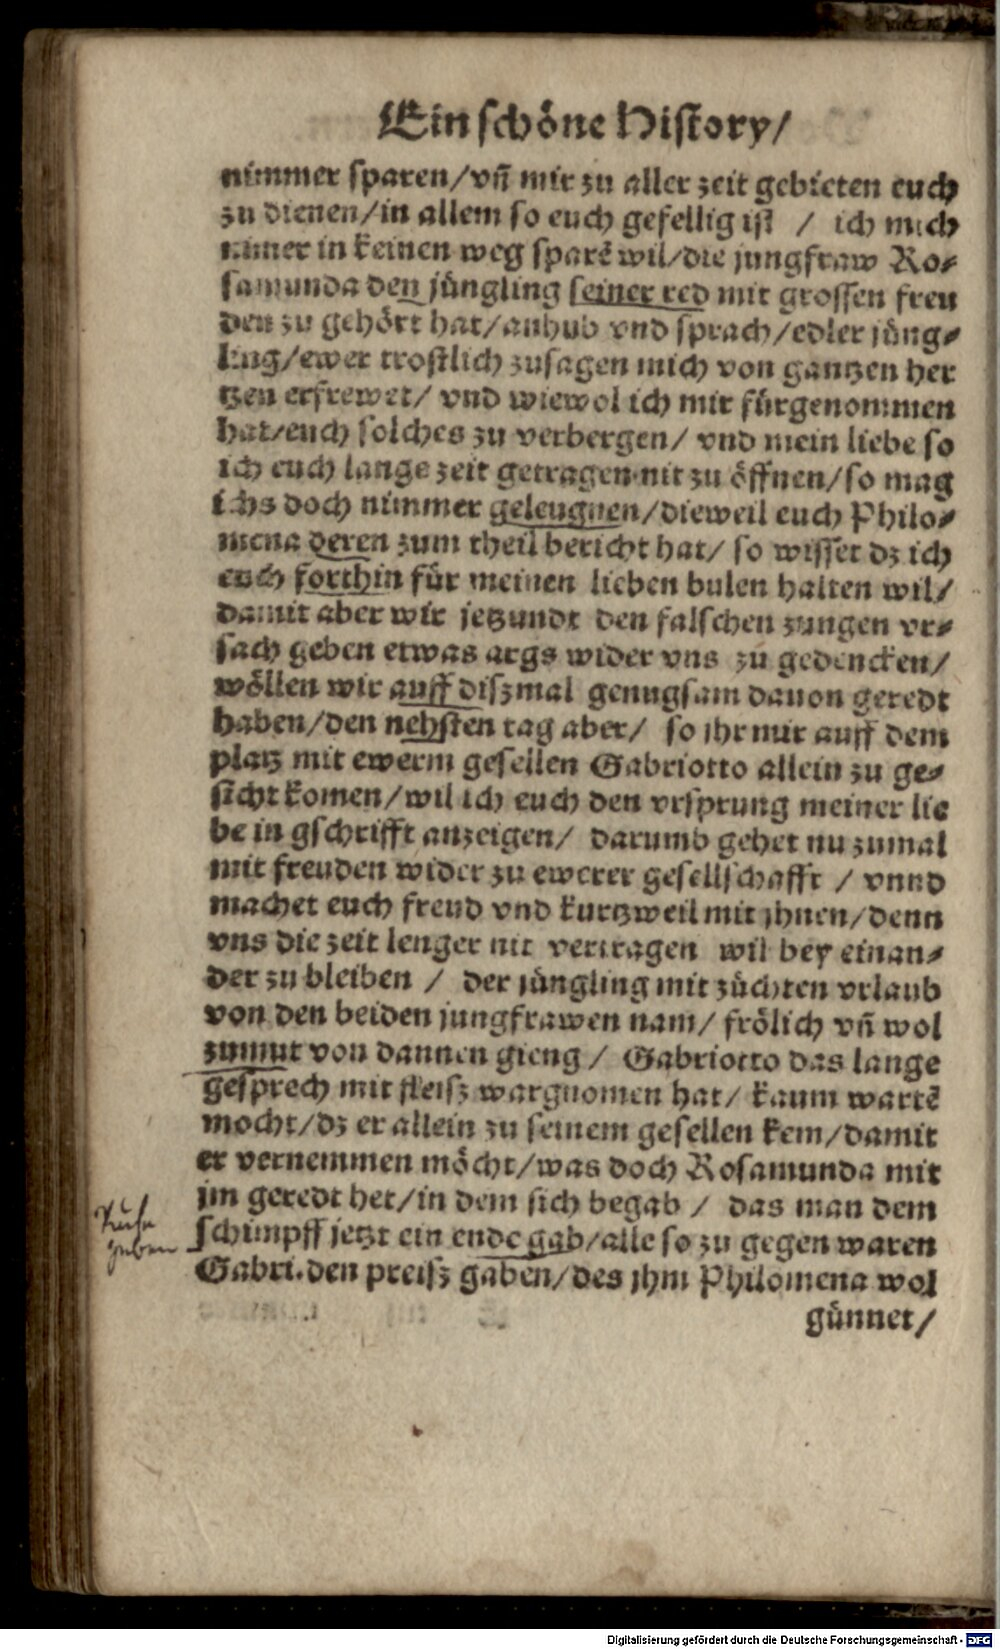 Ein schöne History/
nimmer sparen/vñ mir zu aller zeit gebieten euch
zu dienen/in allem so euch gefellig ist / ich mich
nimer in keinen weg sparē wil/die jungfraw Ro-
samunda den jüngling seiner red mit grossen freu
den zu gehört hat/anhub vnd sprach/edler jüng-
ling/ewer trostlich zusagen mich von gantzen her
tzen erfrewet/ vnd wiewol ich mir fürgenommen
hat/euch solches zu verbergen/ vnd mein liebe so
ich euch lange zeit getragen nit zu öffnen/so mag
ichs doch nimmer geleugnen/dieweil euch Philo-
mena deren zum theil bericht hat/ so wisset dz ich
euch forthin für meinen lieben bulen halten wil/
damit aber wir jetzundt den falschen zungen vr-
sach geben etwas args wider vns zu gedencken/
wöllen wir auff diszmal genugsam dauon geredt
haben/den nehsten tag aber/ so jhr mir auff dem
platz mit ewerm gesellen Gabriotto allein zu ge-
sicht komen/wil ich euch den vrsprung meiner lie
be in gschrifft anzeigen/ darumb gehet nu zumal
mit freuden wider zu ewerer gesellschafft / vnnd
machet euch freud vnd kurtzweil mit jhnen/denn
vns die zeit lenger nit vertragen wil bey einan-
der zu bleiben / der jüngling mit züchten vrlaub
von den beiden jungfrawen nam/ frölich vñ wol
zumut von dannen gieng / Gabriotto das lange
gesprech mit fleisz wargnomen hat/ kaum wartē
mocht/dz er allein zu seinem gesellen kem/damit
er vernemmen möcht/was doch Rosamunda mit
jm geredt het/in dem sich begab / das man dem
schimpff jetzt ein ende gab/alle so zu gegen waren
Gabri.den preisz gaben/des jhm Philomena wol
günnet/
geben
Digitalisierung gefördert durch die Deutsche Forschungsgemeinschaft - DFG